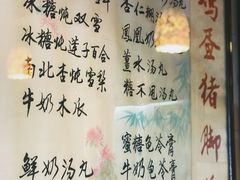 冰糖炖双雪
冰糖炖莲子百合
南北杏炖雪梨
牛奶木瓜
鲜奶汤丸
杏仁糊
凤凰奶
薑水汤丸
糖不甩汤丸
蜜糖龟苓膏
牛奶龟苓膏
鸡蛋猪脚